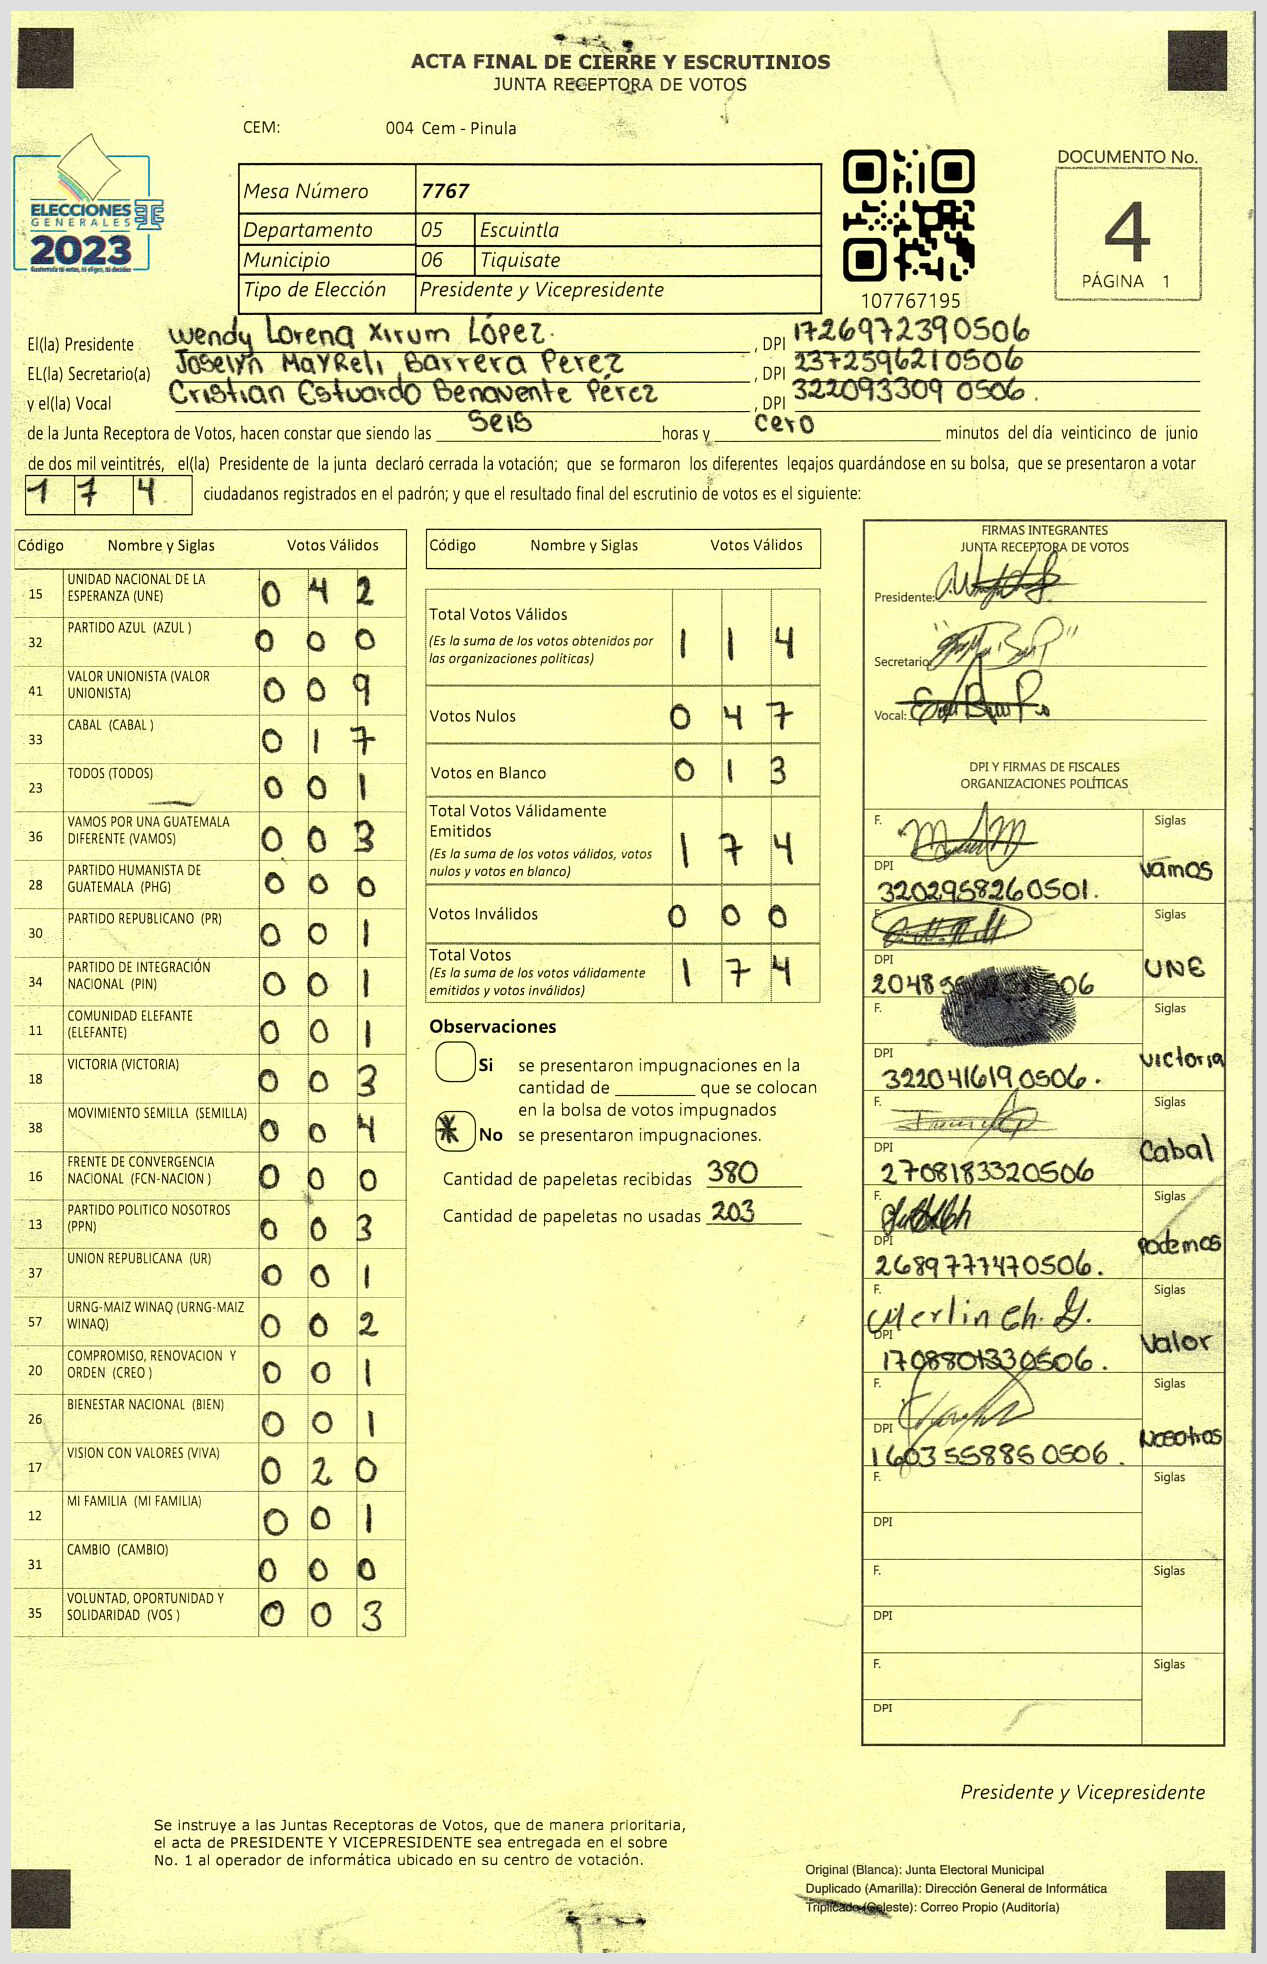 ACTA FINAL DE CIERRE Y ESCRUTINIOS
JUNTA RECEPTORA DE VOTOS
CEM: 004 Cem - Pinula
ELECCIONES
GENERALES
2023
Mesa Número 7767
Departamento 05 Escuintla
Municipio 06 Tiquisate
Tipo de Elección Presidente y Vicepresidente
107767195
DOCUMENTO No.
4
PÁGINA 1
El(la) Presidente Wendy Lorena Xirum López. , DPI 1726972390506
EL(la) Secretario(a) Joselyn MayReli Barrera Perez , DPI 2372596210506
y el(la) Vocal Cristian Estuardo Benavente Pérez , DPI 322093309 0506.
de la Junta Receptora de Votos, hacen constar que siendo las seis horas y cero minutos del día veinticinco de junio
de dos mil veintitrés, el(la) Presidente de la junta declaró cerrada la votación; que se formaron los diferentes legajos guardándose en su bolsa, que se presentaron a votar
1 7 4 ciudadanos registrados en el padrón; y que el resultado final del escrutinio de votos es el siguiente:
Código Nombre y Siglas Votos Válidos
15 UNIDAD NACIONAL DE LA ESPERANZA (UNE) 0 4 2
32 PARTIDO AZUL (AZUL ) 0 0 0
41 VALOR UNIONISTA (VALOR UNIONISTA) 0 0 9
33 CABAL (CABAL ) 0 1 7
23 TODOS (TODOS) 0 0 1
36 VAMOS POR UNA GUATEMALA DIFERENTE (VAMOS) 0 0 3
28 PARTIDO HUMANISTA DE GUATEMALA (PHG) 0 0 0
30 PARTIDO REPUBLICANO (PR) 0 0 1
34 PARTIDO DE INTEGRACIÓN NACIONAL (PIN) 0 0 1
11 COMUNIDAD ELEFANTE (ELEFANTE) 0 0 1
18 VICTORIA (VICTORIA) 0 0 3
38 MOVIMIENTO SEMILLA (SEMILLA) 0 0 4
16 FRENTE DE CONVERGENCIA NACIONAL (FCN-NACION ) 0 0 0
13 PARTIDO POLITICO NOSOTROS (PPN) 0 0 3
37 UNION REPUBLICANA (UR) 0 0 1
57 URNG-MAIZ WINAQ (URNG-MAIZ WINAQ) 0 0 2
20 COMPROMISO, RENOVACION Y ORDEN (CREO ) 0 0 1
26 BIENESTAR NACIONAL (BIEN) 0 0 1
17 VISION CON VALORES (VIVA) 0 2 0
12 MI FAMILIA (MI FAMILIA) 0 0 1
31 CAMBIO (CAMBIO) 0 0 0
35 VOLUNTAD, OPORTUNIDAD Y SOLIDARIDAD (VOS ) 0 0 3
Código Nombre y Siglas Votos Válidos
Total Votos Válidos 1 1 4
(Es la suma de los votos obtenidos por
las organizaciones políticas)
Votos Nulos 0 4 7
Votos en Blanco 0 1 3
Total Votos Válidamente
Emitidos 1 7 4
(Es la suma de los votos válidos, votos
nulos y votos en blanco)
Votos Inválidos 0 0 0
Total Votos 1 7 4
(Es la suma de los votos válidamente
emitidos y votos inválidos)
Observaciones
Si se presentaron impugnaciones en la
cantidad de ________ que se colocan
en la bolsa de votos impugnados
No se presentaron impugnaciones.
Cantidad de papeletas recibidas 380
Cantidad de papeletas no usadas 203
FIRMAS INTEGRANTES
JUNTA RECEPTORA DE VOTOS
Presidente:
Secretario
Vocal:
DPI Y FIRMAS DE FISCALES
ORGANIZACIONES POLÍTICAS
F. Siglas
DPI 3202958260501. Vamos
F. Siglas
DPI UNE
F. Siglas
DPI 3220416190506. Victoria
F. Siglas
DPI 2708183320506 Cabal
F. Siglas
DPI 2689777470506. Podemos
F. Merlin Ch. G. Siglas
DPI 1708801330506. Valor
F. Siglas
DPI 1603558850506. Nosotros
F. Siglas
DPI
F. Siglas
DPI
F. Siglas
DPI
Presidente y Vicepresidente
Se instruye a las Juntas Receptoras de Votos, que de manera prioritaria,
el acta de PRESIDENTE Y VICEPRESIDENTE sea entregada en el sobre
No. 1 al operador de informática ubicado en su centro de votación.
Original (Blanca): Junta Electoral Municipal
Duplicado (Amarilla): Dirección General de Informática
Triplicado (Celeste): Correo Propio (Auditoría)